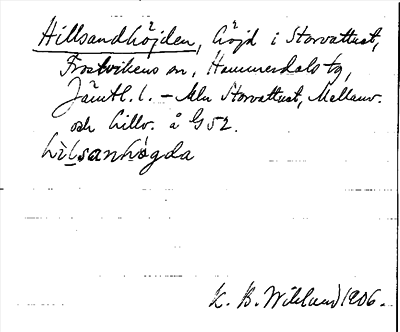 Hillsandhöjden, höjd i Storvattust,
Frostvikens sn, Hammerdals tg,
Jämtl. l. – Mln Storvattust, Mellanv.
och Lillv. å G52.
hìlsanhǿgda
K. B. Wiklund 1906.